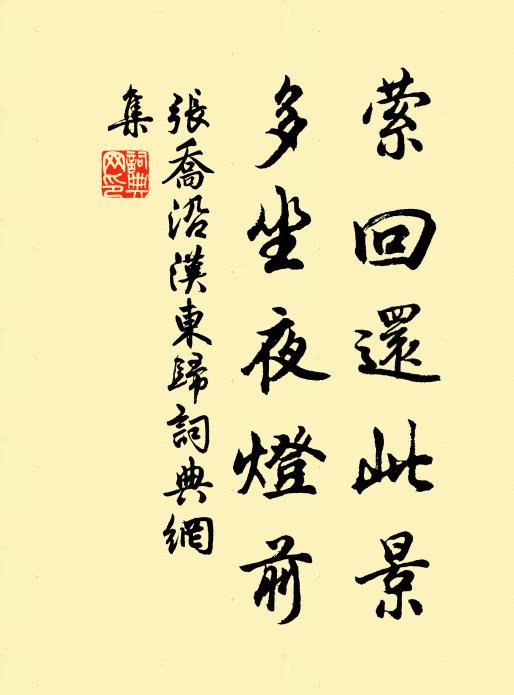 萦回還此景
多坐夜燈前
張喬沿漢東歸詞典網
集
詞典
网印